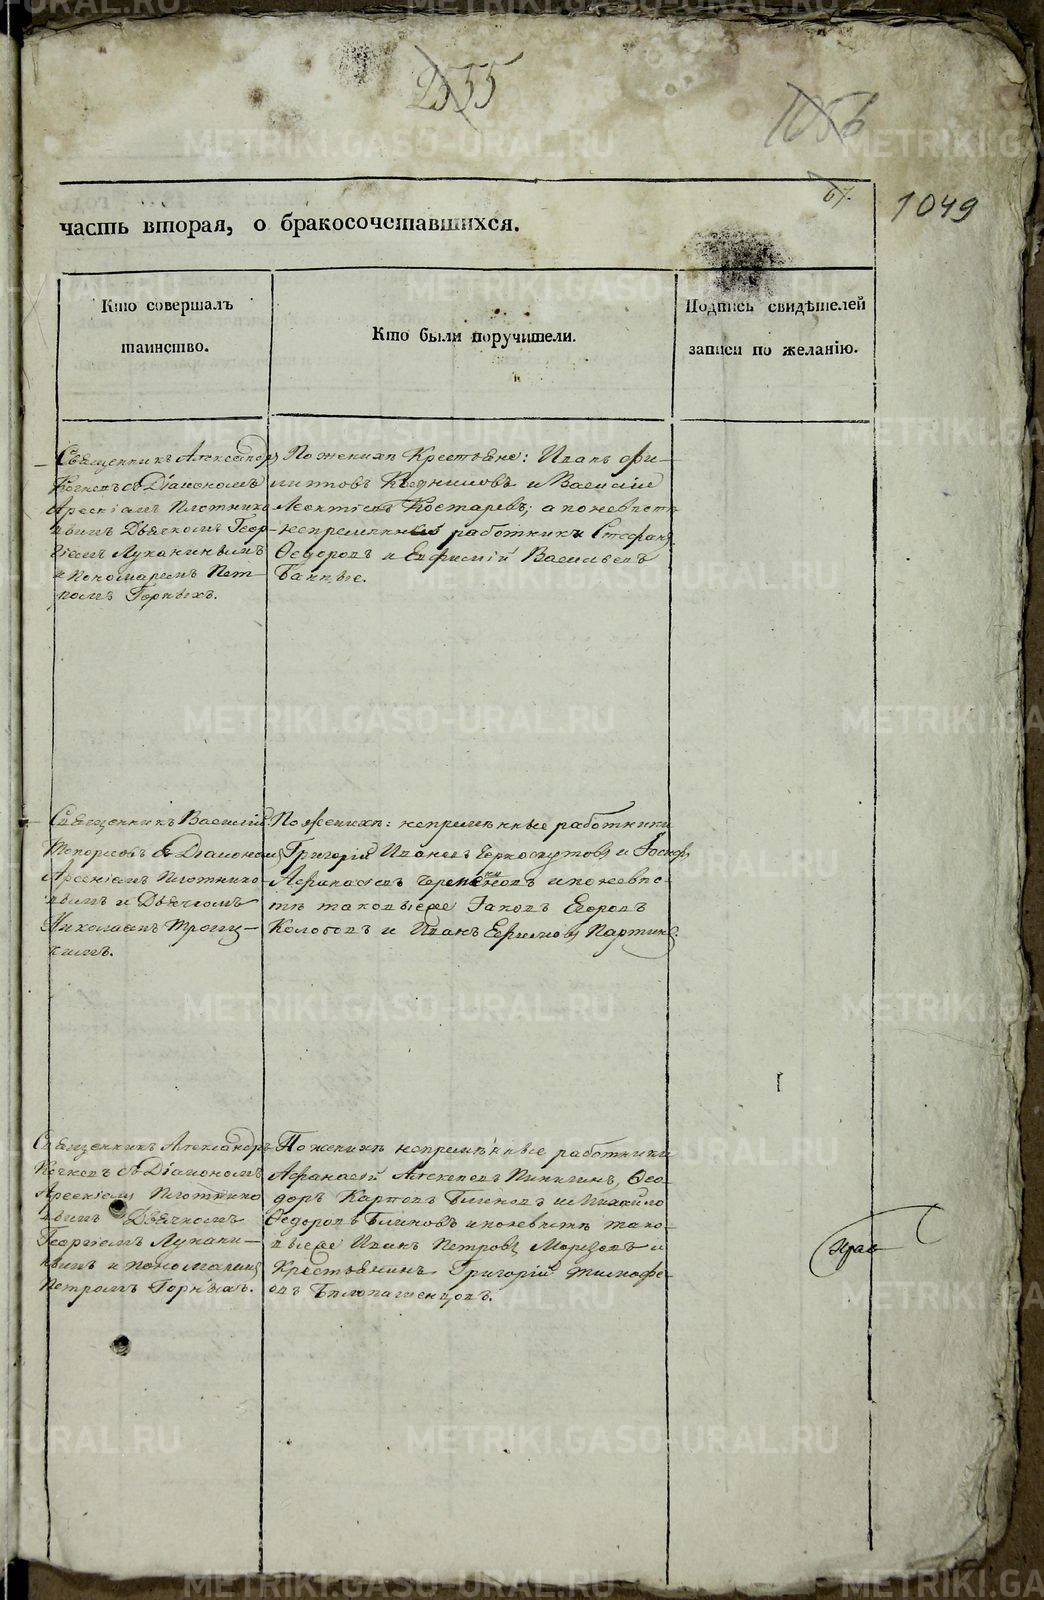 2555
1056
67.
1049
часть вторая, о бракосочетавшихся.
Кто совершалъ
таинство.
Кто были поручители.
Подпись свидѣтелей
записи по желанію.
Священникъ Александръ
съ Діакономъ
Арсеніемъ Плотнико-
вымъ Дьячкомъ Геор-
гіемъ Луканинымъ
и Пономаремъ Пет-
ромъ Горныхъ.
По женихѣ Крестьяне: Иванъ Фи-
липповъ и Василій
Леонтіевъ Костаревъ; а по невѣстѣ
непремѣнные работники Стефанъ
Федоровъ и Евфимій Васильевъ
Банные.
Священникъ Василій
Топорковъ съ Діакономъ
Арсеніемъ Плотнико-
вымъ и Дьячкомъ
Николаемъ Троиц-
кимъ.
По женихѣ: непремѣнные работники
Григорій Ивановъ Черноскутовъ и Іосифъ
Афанасіевъ и по невѣс-
тѣ таковые же Іаковъ Егоровъ
Колобовъ и Иванъ Ефимовъ
Священникъ Александръ
съ Діакономъ
Арсеніемъ Плотнико-
вымъ Дьячкомъ
Георгіемъ Лукани-
нымъ и пономаремъ
Петромъ Горныхъ.
По женихѣ непремѣнные работники
Афанасій Алексѣевъ Пинигинъ, Ѳео-
доръ Карповъ Блиновъ и Михайло
Ѳедоровъ Блиновъ и по невѣстѣ тако-
вые же Иванъ Петровъ Морозовъ и
Крестьянинъ Григорій Тимофе-
евъ Бѣлопашенцовъ.
METRIKI.GASO-URAL.RU